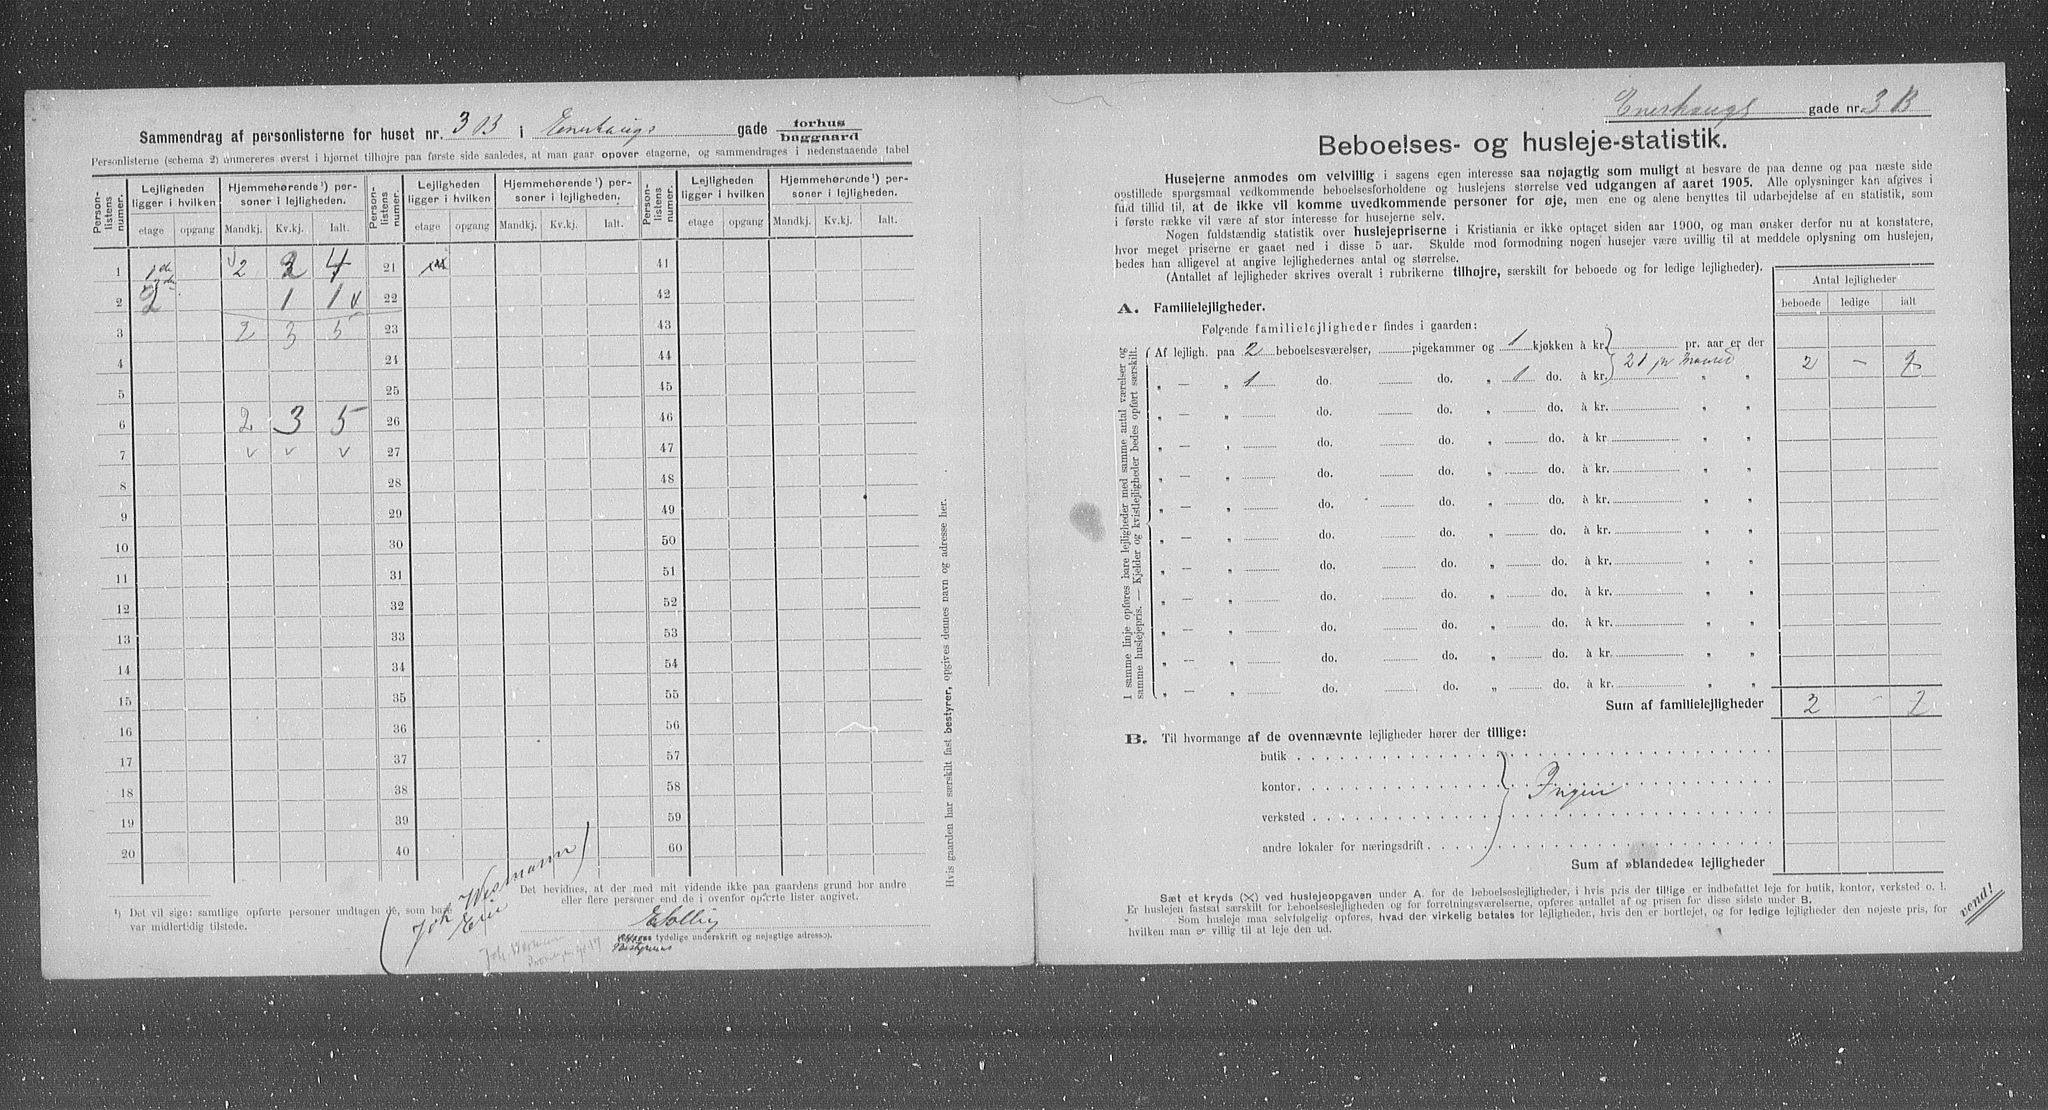 Sammendrag af personlisterne for huset nr. 3 B i Enerhaugs gade forhus baggaard
Personlisterne (schema 2) nummereres øverst i hjørnet tilhøjre paa første side saaledes, at man gaar opover etagerne, og sammendrages i nedenstaaende tabel
Personlistens nummer. Lejligheden ligger i hvilken Hjemmehørende ¹) personer i lejligheden. Personlistens nummer. Lejligheden ligger i hvilken Hjemmehørende ¹) personer i lejligheden. Personlistens nummer. Lejligheden ligger i hvilken Hjemmehørende ¹) personer i lejligheden.
etage opgang Mandkj. Kv.kj. Ialt. etage opgang Mandkj. Kv.kj. Ialt. etage opgang Mandkj. Kv.kj. Ialt.
1 1 2 4 21 41
2 2 1 1 v 22 42
3 2 3 5 23 43
4 24 44
5 25 45
6 2 3 5 26 46
7 v v v 27 47
8 28 48
9 29 49
10 30 50
11 31 51
12 32 52
13 33 53
14 34 54
15 35 55
16 36 56
17 37 57
18 38 58
19 39 59
20 40 60
Hvis gaarden har særskilt fast bestyrer, opgives dennes navn og adresse her.
¹) Det vil sige: samtlige opførte personer undtagen de, som bare
var midlertidig tilstede.
Joh. Wesmann
Eier
Det bevidnes, at der med mit vidende ikke paa gaardens grund bor andre
eller flere personer end de i ovenfor opførte lister angivet.
(Husejerens tydelige underskrift og nøjagtige adresse).
Bestyrerens
Enerhaugs gade nr. 3 B
Beboelses- og husleje-statistik.
Husejerne anmodes om velvillig i sagens egen interesse saa nøjagtig som muligt at besvare de paa denne og paa næste side
opstillede spørgsmaal vedkommende beboelsesforholdene og huslejens størrelse ved udgangen af aaret 1905. Alle oplysninger kan afgives i
fuld tillid til, at de ikke vil komme uvedkommende personer for øje, men ene og alene benyttes til udarbejdelse af en statistik, som
i første række vil være af stor interesse for husejerne selv.
Nogen fuldstændig statistik over huslejepriserne i Kristiania er ikke optaget siden aar 1900, og man ønsker derfor nu at konstatere,
hvor meget priserne er gaaet ned i disse 5 aar. Skulde mod formodning nogen husejer være uvillig til at meddele oplysning om huslejen,
bedes han alligevel at angive lejlighedernes antal og størrelse.
(Antallet af lejligheder skrives overalt i rubrikerne tilhøjre, særskilt for beboede og for ledige lejligheder).
Antal lejligheder
beboede ledige ialt
A. Familielejligheder.
Følgende familielejligheder findes i gaarden:
I samme linje opføres bare lejligheder med samme antal værelser og
samme huslejepris. — Kjelder og kvistlejligheder bedes opført særskilt.
Af lejligh. paa 2 beboelsesværelser, pigekammer og 1 kjøkken à kr. pr. aar er der
„ — „ 1 do. do. „ 1 do. à kr. 21 pr Maaned „ „ 2 – 2
„ — „ do. do. „ do. à kr. „ „
„ — „ do. do. „ do. à kr „ „
„ — „ do. do. „ do. à kr. „ „
„ — „ do. do. „ do. à kr. „ „
„ — „ do. do. „ do. à kr. „ „
„ — „ do. do. „ do. à kr. „ „
„ — „ do. do. „ do. à kr. „ „
„ — „ do. do. „ do. à kr. „ „
„ — „ do. do. „ do. à kr. „ „
„ — „ do. do. „ do. à kr. „ „
Sum af familielejligheder 2 – 2
B. Til hvormange af de ovennævnte lejligheder hører der tillige:
butik
kontor
Ingen
verksted
andre lokaler for næringsdrift
Sum af »blandede« lejligheder
Sæt et kryds (X) ved huslejeopgaven under A. for de beboelseslejligheder, i hvis pris der tillige er indbefattet leje for butik, kontor, verksted o. l.
Er huslejen fastsat særskilt for beboelseslejligheden og for forretningsværelserne, opføres antallet af og prisen for disse sidste under B.
Som husleje maa selvfølgelig opføres, hvad der virkelig betales for lejligheder, hvis den er bortlejet, og for ledige lejligheder den nøjeste pris, for
hvilken man er villig til at leje den ud.
vend!